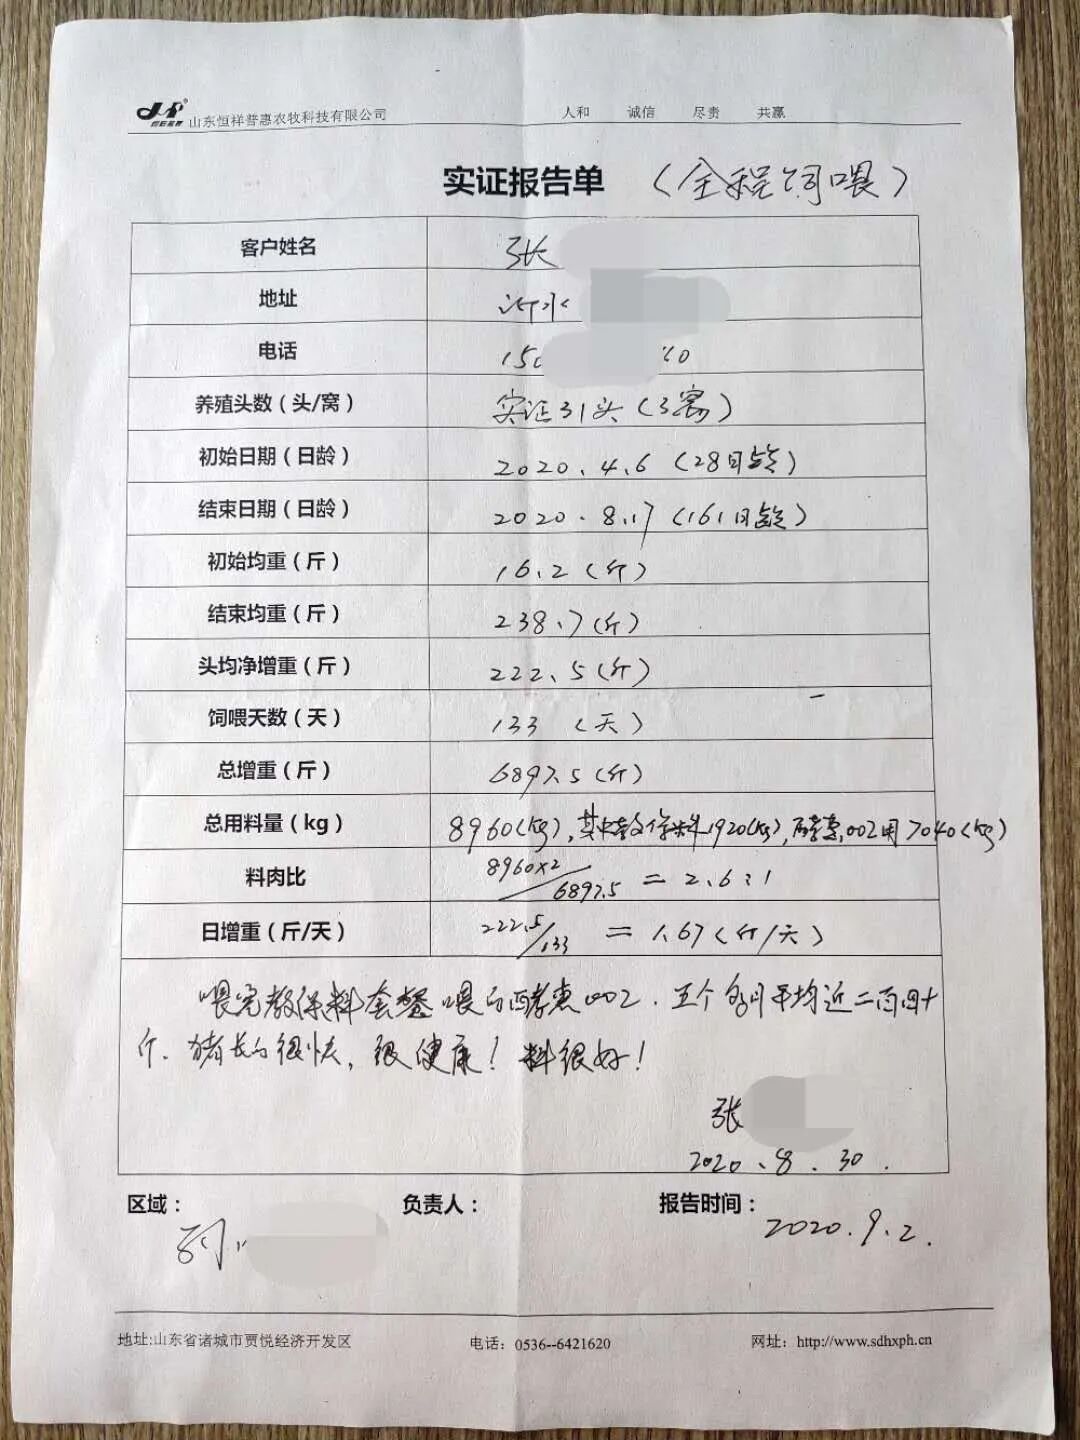 山东恒祥普惠农牧科技有限公司 人和 诚信 尽责 共赢
实证报告单 （全程饲喂）
客户姓名 张
地址 沂水
电话 150 20
养殖头数（头/窝） 实证31头（3窝）
初始日期（日龄） 2020.4.6（28日龄）
结束日期（日龄） 2020.8.17（161日龄）
初始均重（斤） 16.2（斤）
结束均重（斤） 238.7（斤）
头均净增重（斤） 222.5（斤）
饲喂天数（天） 133（天）
总增重（斤） 6897.5（斤）
总用料量（kg） 8960(kg),其中教保料1920(kg),酵惠002用7040(kg)
料肉比 8960×2/6897.5=2.6:1
日增重（斤/天） 222.5/133=1.67（斤/天）
喂完教保料套餐喂的酵惠002.五个多月平均近二百四十
斤.猪长的很快，很健康！料很好！
张
2020.8.30.
区域： 负责人： 报告时间：
2020.9.2.
地址:山东省诸城市贾悦经济开发区 电话：0536--6421620 网址：http://www.sdhxph.cn